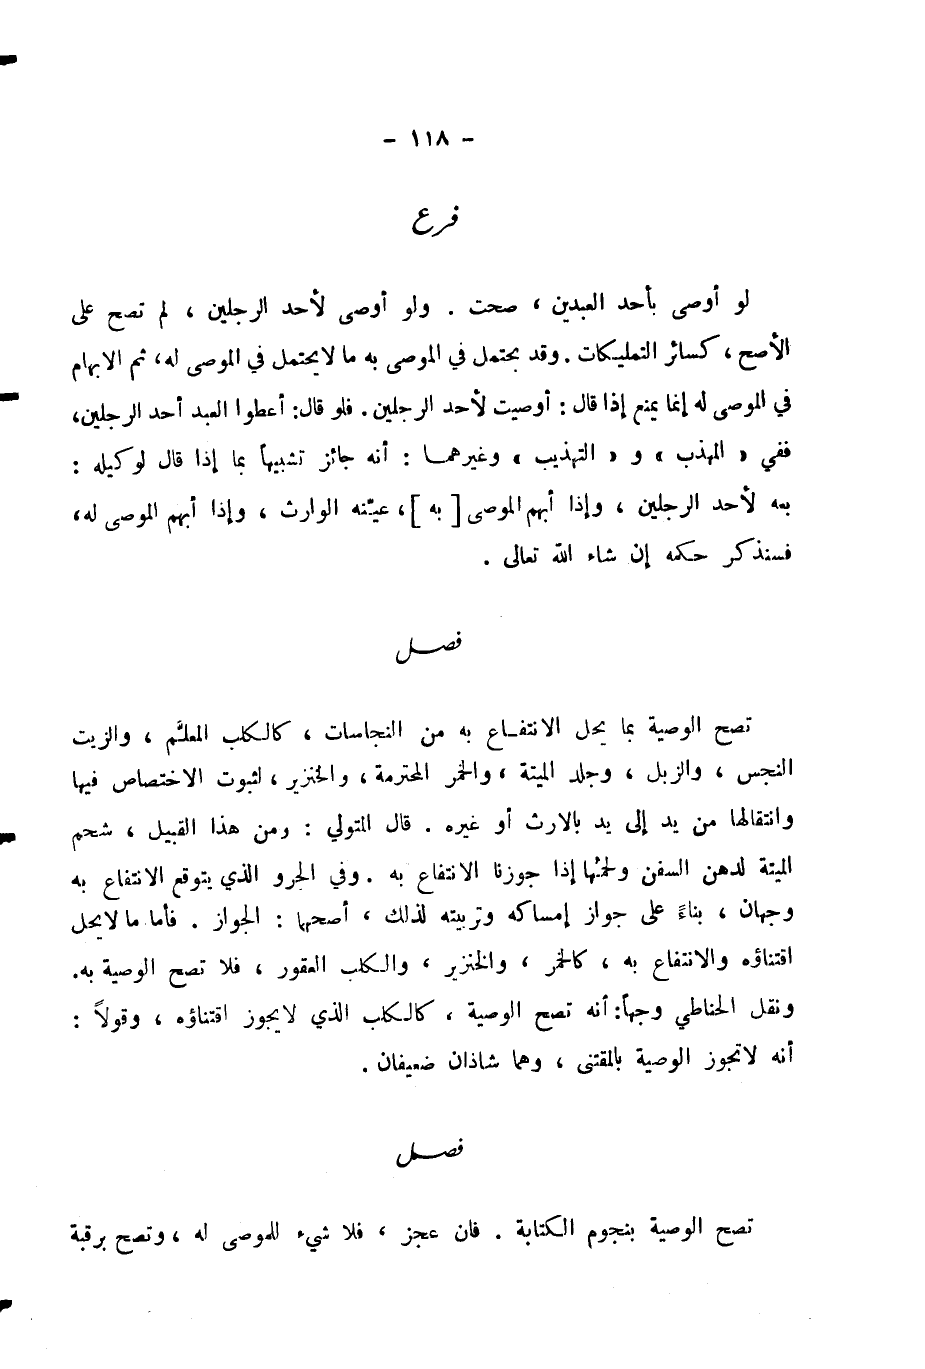 - ١١٨ -
فرع
لو أوصى بأحد العبدين ، صحت . ولو أوصى لأحد الرجلين ، لم تصح على
الأصح ، كسائر التمليكات . وقد يحتمل في الموصى به ما لا يحتمل في الموصى له، ثم الابهام
في الموصى له إنما يمنع إذا قال : أوصيت لأحد الرجلين . فلو قال: أعطوا العبد أحد الرجلين،
ففي « المهذب » و « التهذيب » وغيرهما : أنه جائز تشبيهاً بما إذا قال لوكيله :
بعه لأحد الرجلين ، وإذا أبهم الموصى [ به ]، عيّنه الوارث ، وإذا أبهم الموصى له،
فسنذكر حكمه إن شاء الله تعالى .
فصل
تصح الوصية بما يحل الانتفاع به من النجاسات ، كالكلب المعلَّم ، والزيت
النجس ، والزبل ، وجلد الميتة ، والخمر المحترمة ، والخنزير ، لثبوت الاختصاص فيها
وانتقالها من يد إلى يد بالارث أو غيره . قال المتولي : ومن هذا القبيل ، شحم
الميتة لدهن السفن ولحمُها إذا جوزنا الانتفاع به . وفي الجرو الذي يتوقع الانتفاع به
وجهان ، بناءً على جواز إمساكه وتربيته لذلك ، أصحها : الجواز . فأما ما لا يحل
اقتناؤه والانتفاع به ، كالخمر ، والخنزير ، والكلب العقور ، فلا تصح الوصية به.
ونقل الحناطي وجهاً: أنه تصح الوصية ، كالكلب الذي لا يجوز اقتناؤه ، وقولاً :
أنه لا تجوز الوصية بالمقتنى ، وهما شاذان ضعيفان .
فصل
تصح الوصية بنجوم الكتابة . فان عجز ، فلا شيء للموصى له ، وتصح برقبة